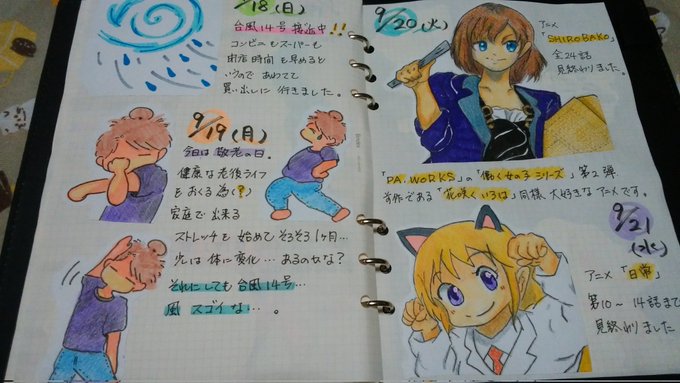 /18(日)
台風14号 接近中!!
コンビニもスーパーも
閉店時間を早めると
いうので あわてて
買い出しに 行きました。
9/19(月)
今日は 敬老の日。
健康な 老後ライフ
をおくる為(?)
家庭で 出来る
ストレッチを 始めて そろそろ 1ヶ月…
少しは 体に変化… あるのかな?
それにしても 台風14号…
風 スゴイな… 。
9/20(火)
アニメ
「SHIROBAKO」
全24話
見終わりました。
「P.A.WORKS」の「働く女の子シリーズ」第2弾
前作である「花咲くいろは」同様 大好きなアニメです。
9/21
(水)
アニメ「日常」
第10〜14話まで
見終わりました